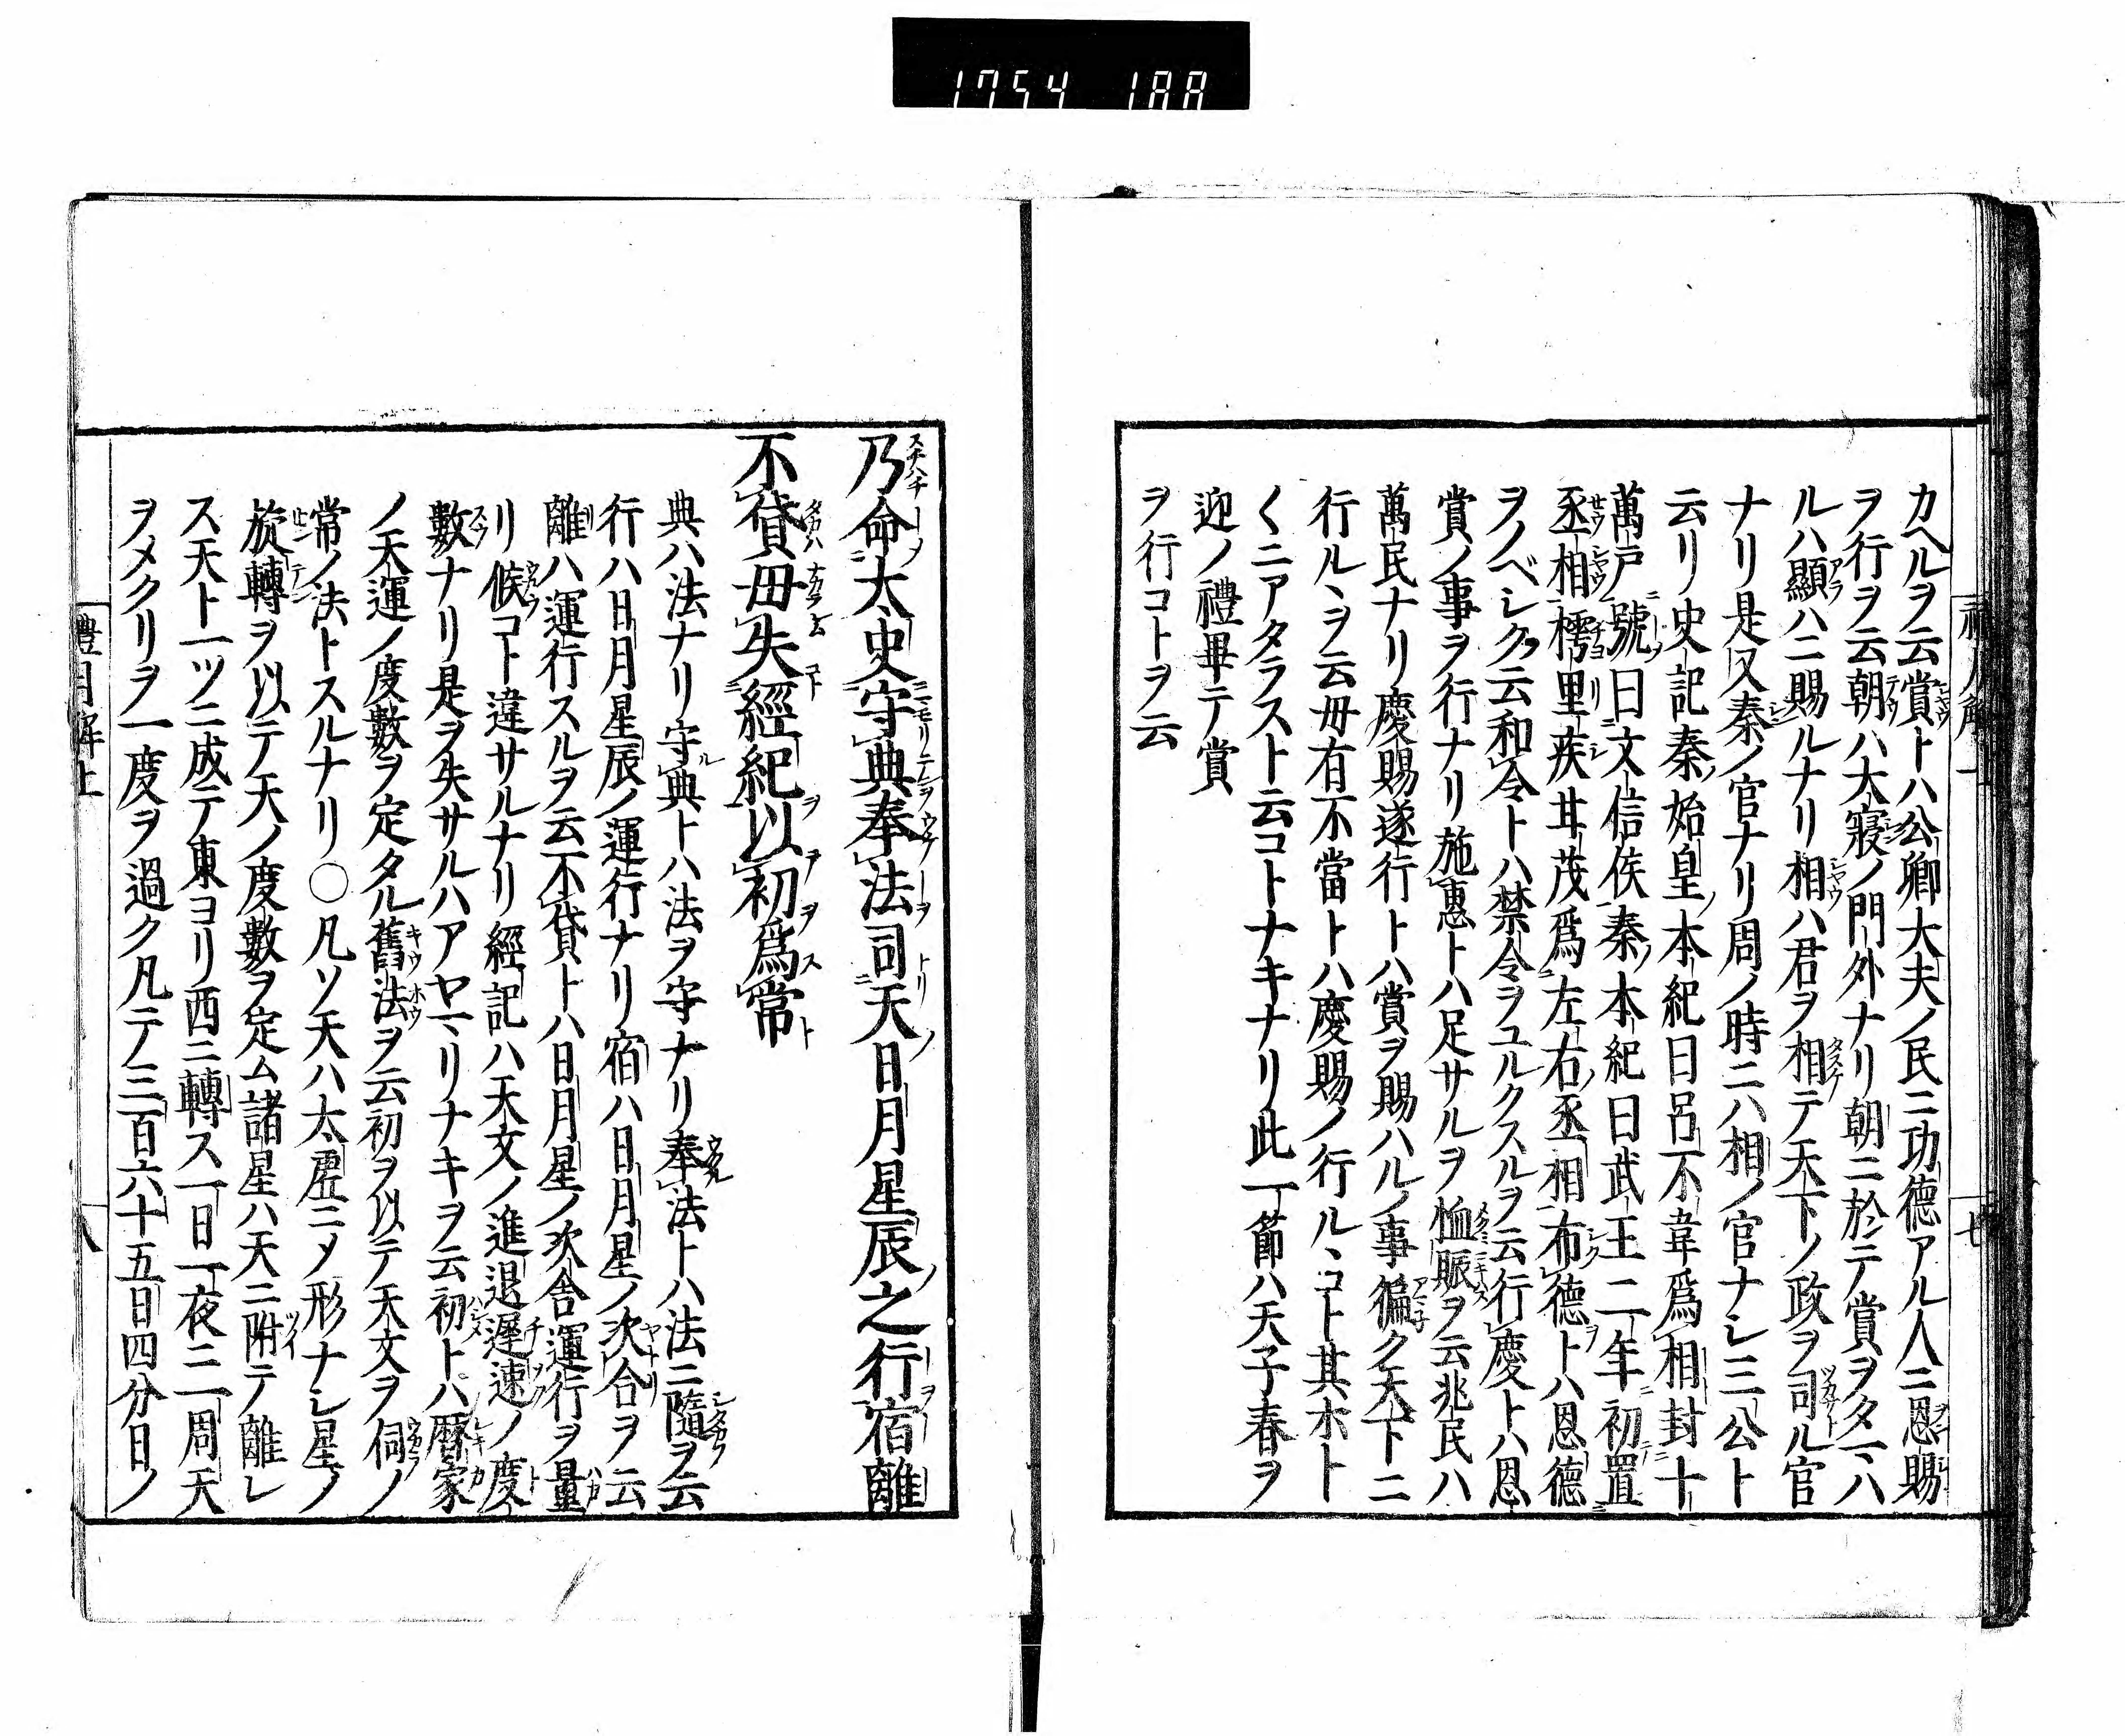 1754 188
カヘルヲ云賞トハ公卿大夫ノ民ニ功德アル人ニ恩賜
ヲ行ヲ云朝ハ大寢ノ門外ナリ朝ニ於テ賞ヲタマハ
ルハ顯ハニ賜ルナリ相ハ君ヲ相テ天下ノ政ヲ司ル官
ナリ是又秦ノ官ナリ周ノ時ニハ相ノ官ナシ三公ト
云リ史記秦始皇本紀曰呂不韋爲相封十
萬戸號曰文信侯秦本紀曰武王二年初置
丞相樗里疾甘茂爲左右丞相布德トハ恩德
ヲノベシクヲ云和令トハ禁令ヲユルクスルヲ云行慶トハ恩
賞ノ事ヲ行ナリ施惠トハ足サルヲ恤賑ヲ云兆民ハ
萬民ナリ慶賜遂行トハ賞ヲ賜ハルノ事徧ク天下ニ
行ルヽヲ云毋有不當トハ慶賜ノ行ルヽコト其ホト
くニアタラスト云コトナキナリ此一節ハ天子春ヲ
迎ノ禮畢テ賞
ヲ行コトヲ云
乃命大史守典奉法司天日月星辰之行宿離
不貸毋失經紀以初爲常
典ハ法ナリ守典トハ法ヲ守ナリ奉法トハ法ニ隨ヲ云
行ハ日月星辰ノ運行ナリ宿ハ日月星ノ次合ヲ云
離ハ運行スルヲ云不貸トハ日月星ノ次舍運行ヲ量
リ候コト違サルナリ經記ハ天文ノ進退遲速ノ度
數ナリ是ヲ失サルハアヤマリナキヲ云初トハ暦家
ノ天運ノ度數ヲ定タル舊法ヲ云初ヲ以テ天文ヲ伺ノ
常ノ法トスルナリ〇凡ソ天ハ太虛ニメ形ナシ星ノ
旋轉ヲ以テ天ノ度數ヲ定ム諸星ハ天ニ附テ離レ
ス天ト一ツニ成テ東ヨリ西ニ轉ス一日一夜ニ一周天
ヲメクリヲ一度ヲ過ク凡テノ三百六十五日四分日ノ
禮月解上
八